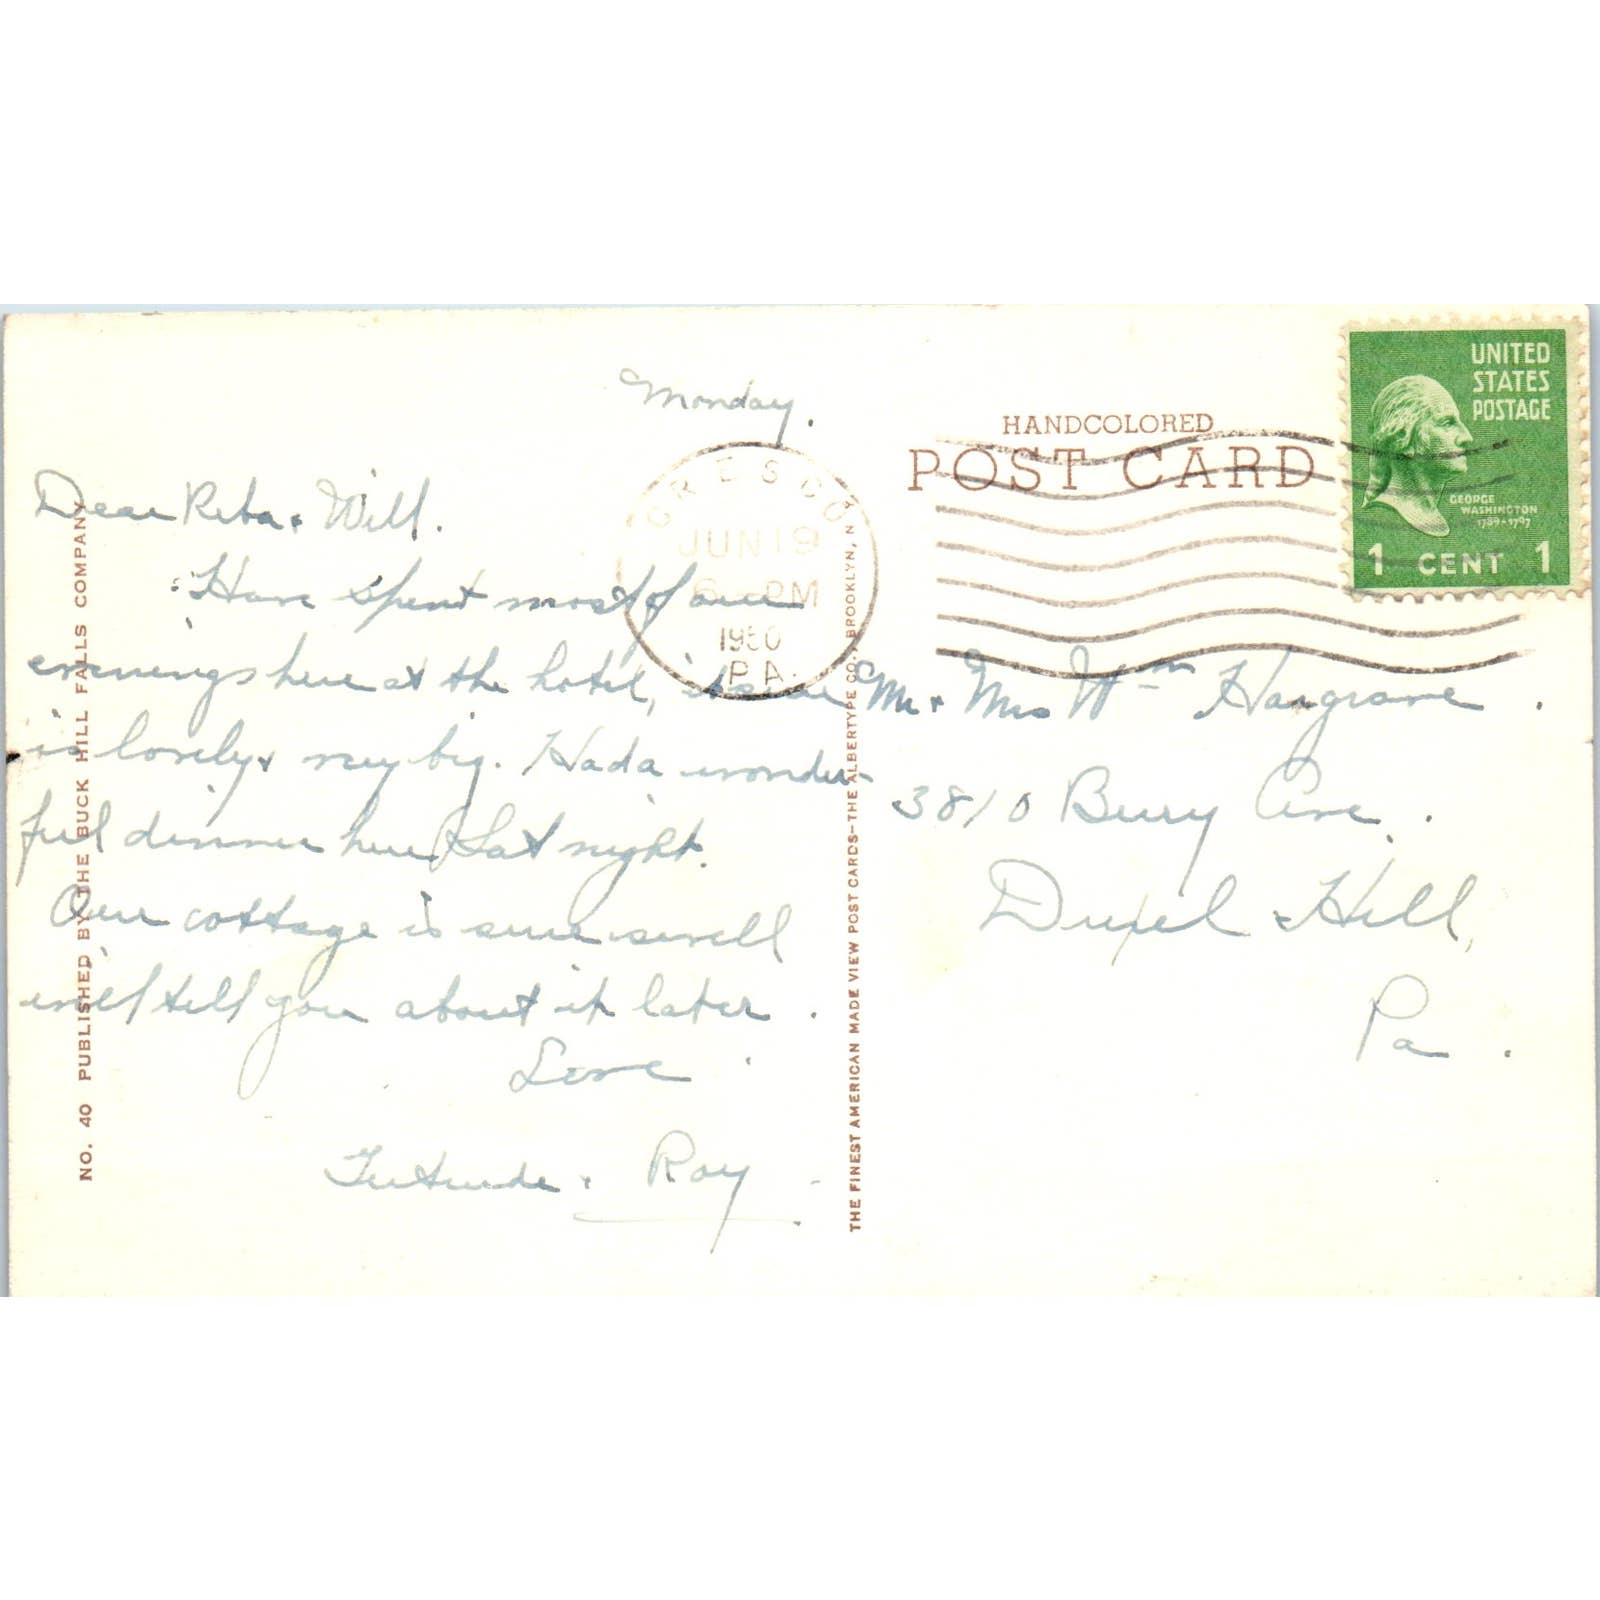 Monday.
Dear Reba & Will.
Have spent most of our
evenings here at the hotel, it sure
is lovely & very big. Had a wonder-
ful dinner here Sat night.
Our cottage is sure swell
will tell you about it later.
Love
Gertrude & Roy
NO. 40 PUBLISHED BY THE BUCK HILL FALLS COMPANY
CRESCO
JUN 19
6 - PM
1950
PA.
THE FINEST AMERICAN MADE VIEW POST CARDS—THE ALBERTYPE CO., BROOKLYN, N.Y.
HANDCOLORED
POST CARD
UNITED
STATES
POSTAGE
GEORGE
WASHINGTON
1789-1797
1 CENT 1
Mr & Mrs Wm Hargrave
3810 Ave.
Drexel Hill,
Pa.